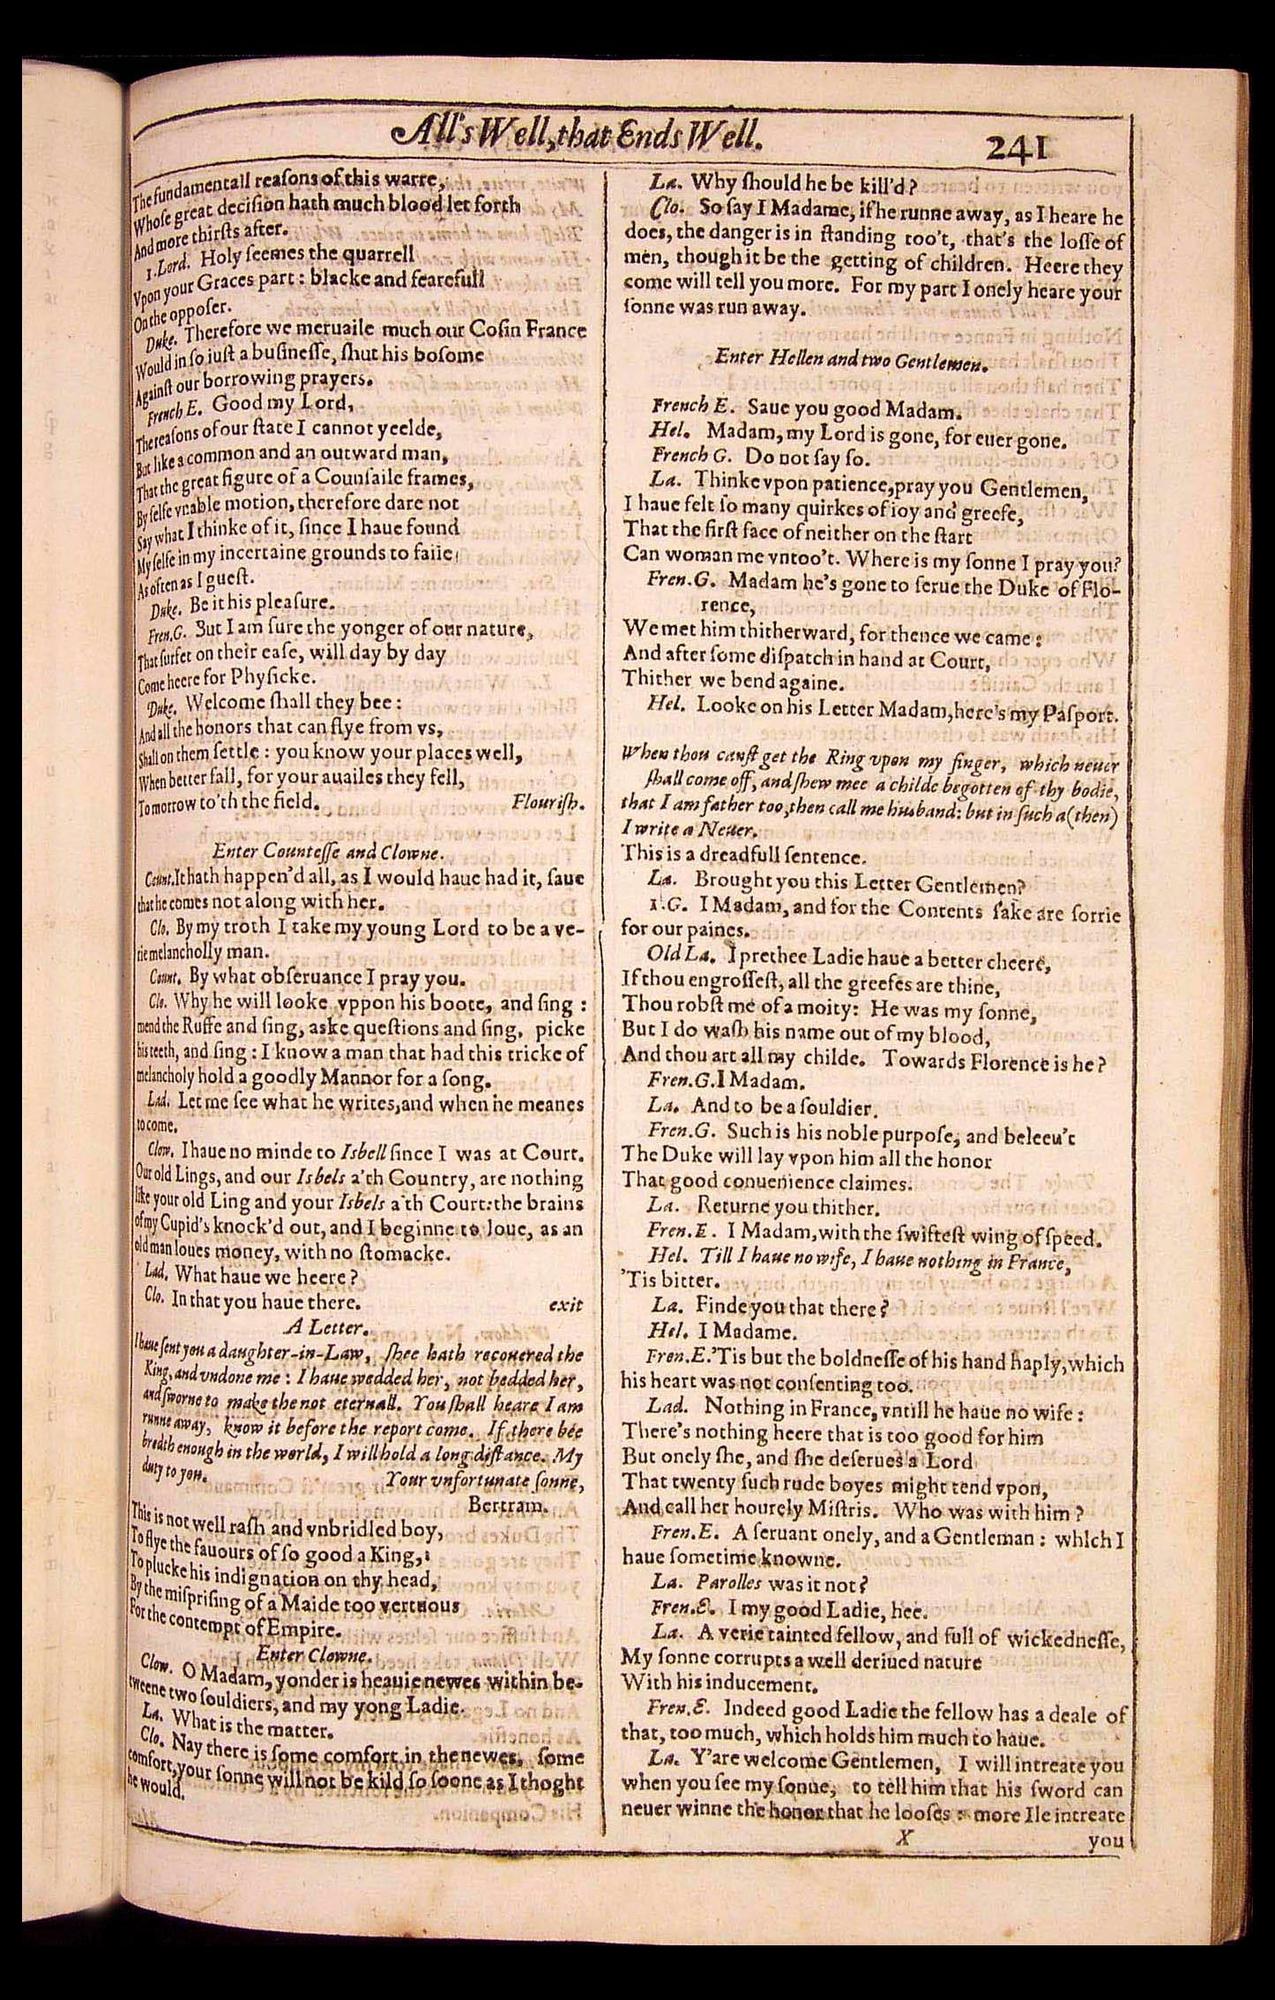 All's Well, that Ends Well. 241
The fundamentall reasons of this warre,
Whose great decision hath much blood let forth
And more thirsts after.
1.Lord. Holy seemes the quarrell
Vpon your Graces part: blacke and fearefull
On the opposer.
Duke. Therefore we meruaile much our Cosin France
Would in so iust a businesse, shut his bosome
Against our borrowing prayers.
French E. Good my Lord,
The reasons of our state I cannot yeelde,
But like a common and an outward man,
That the great figure of a Counsaile frames,
By selfe vnable motion, therefore dare not
Say what I thinke of it, since I haue found
My selfe in my incertaine grounds to faile
As often as I guest.
Duke. Be it his pleasure.
Fren.G. But I am sure the yonger of our nature,
That surfet on their ease, will day by day
Come heere for Physicke.
Duke. Welcome shall they bee:
And all the honors that can flye from vs,
Shall on them settle: you know your places well,
When better fall, for your auailes they fell,
To morrow to'th the field. Flourish.
Enter Countesse and Clowne.
Count. It hath happen'd all, as I would haue had it, saue
that he comes not along with her.
Clo. By my troth I take my young Lord to be a ve-
rie melancholly man.
Count. By what obseruance I pray you.
Clo. Why he will looke vppon his boote, and sing:
mend the Ruffe and sing, aske questions and sing, picke
his teeth, and sing: I know a man that had this tricke of
melancholy hold a goodly Mannor for a song.
Lad. Let me see what he writes, and when he meanes
to come.
Clow. I haue no minde to Isbell since I was at Court.
Our old Lings, and our Isbels a'th Country, are nothing
like your old Ling and your Isbels a'th Court: the brains
of my Cupid's knock'd out, and I beginne to loue, as an
old man loues money, with no stomacke.
Lad. What haue we heere?
Clo. In that you haue there. exit
A Letter.
I haue sent you a daughter-in-Law, shee hath recouered the
King, and vndone me: I haue wedded her, not bedded her,
and sworne to make the not eternall. You shall heare I am
runne away, know it before the report come. If there bee
bredth enough in the world, I will hold a long distance. My
duty to you. Your vnfortunate sonne,
Bertram.
This is not well rash and vnbridled boy,
To flye the fauours of so good a King,
To plucke his indignation on thy head,
By the misprising of a Maide too vertuous
For the contempt of Empire.
Enter Clowne.
Clow. O Madam, yonder is heauie newes within be-
tweene two souldiers, and my yong Ladie.
La. What is the matter.
Clo. Nay there is some comfort in the newes, some
comfort, your sonne will not be kild so soone as I thoght
he would.
La. Why should he be kill'd?
Clo. So say I Madame, if he runne away, as I heare he
does, the danger is in standing too't, that's the losse of
men, though it be the getting of children. Heere they
come will tell you more. For my part I onely heare your
sonne was run away.
Enter Hellen and two Gentlemen.
French E. Saue you good Madam.
Hel. Madam, my Lord is gone, for euer gone.
French G. Do not say so.
La. Thinke vpon patience, pray you Gentlemen,
I haue felt so many quirkes of ioy and greefe,
That the first face of neither on the start
Can woman me vntoo't. Where is my sonne I pray you?
Fren.G. Madam he's gone to serue the Duke of Flo-
rence,
We met him thitherward, for thence we came:
And after some dispatch in hand at Court,
Thither we bend againe.
Hel. Looke on his Letter Madam, here's my Pasport.
When thou canst get the Ring vpon my finger, which neuer
shall come off, and shew mee a childe begotten of thy bodie,
that I am father too, then call me husband: but in such a (then)
I write a Neuer.
This is a dreadfull sentence.
La. Brought you this Letter Gentlemen?
1.G. I Madam, and for the Contents sake are sorrie
for our paines.
Old La. I prethee Ladie haue a better cheere,
If thou engrossest, all the greefes are thine,
Thou robst me of a moity: He was my sonne,
But I do wash his name out of my blood,
And thou art all my childe. Towards Florence is he?
Fren.G. I Madam.
La. And to be a souldier.
Fren.G. Such is his noble purpose, and beleeu't
The Duke will lay vpon him all the honor
That good conuenience claimes.
La. Returne you thither.
Fren.E. I Madam, with the swiftest wing of speed.
Hel. Till I haue no wife, I haue nothing in France,
'Tis bitter.
La. Finde you that there?
Hel. I Madame.
Fren.E. 'Tis but the boldnesse of his hand haply, which
his heart was not consenting too.
Lad. Nothing in France, vntill he haue no wife:
There's nothing heere that is too good for him
But onely she, and she deserues a Lord
That twenty such rude boyes might tend vpon,
And call her hourely Mistris. Who was with him?
Fren.E. A seruant onely, and a Gentleman: which I
haue sometime knowne.
La. Parolles was it not?
Fren.E. I my good Ladie, hee.
La. A verie tainted fellow, and full of wickednesse,
My sonne corrupts a well deriued nature
With his inducement.
Fren.E. Indeed good Ladie the fellow has a deale of
that, too much, which holds him much to haue.
La. Y'are welcome Gentlemen, I will intreate you
when you see my sonne, to tell him that his sword can
neuer winne the honor that he looses: more Ile intreate
X you